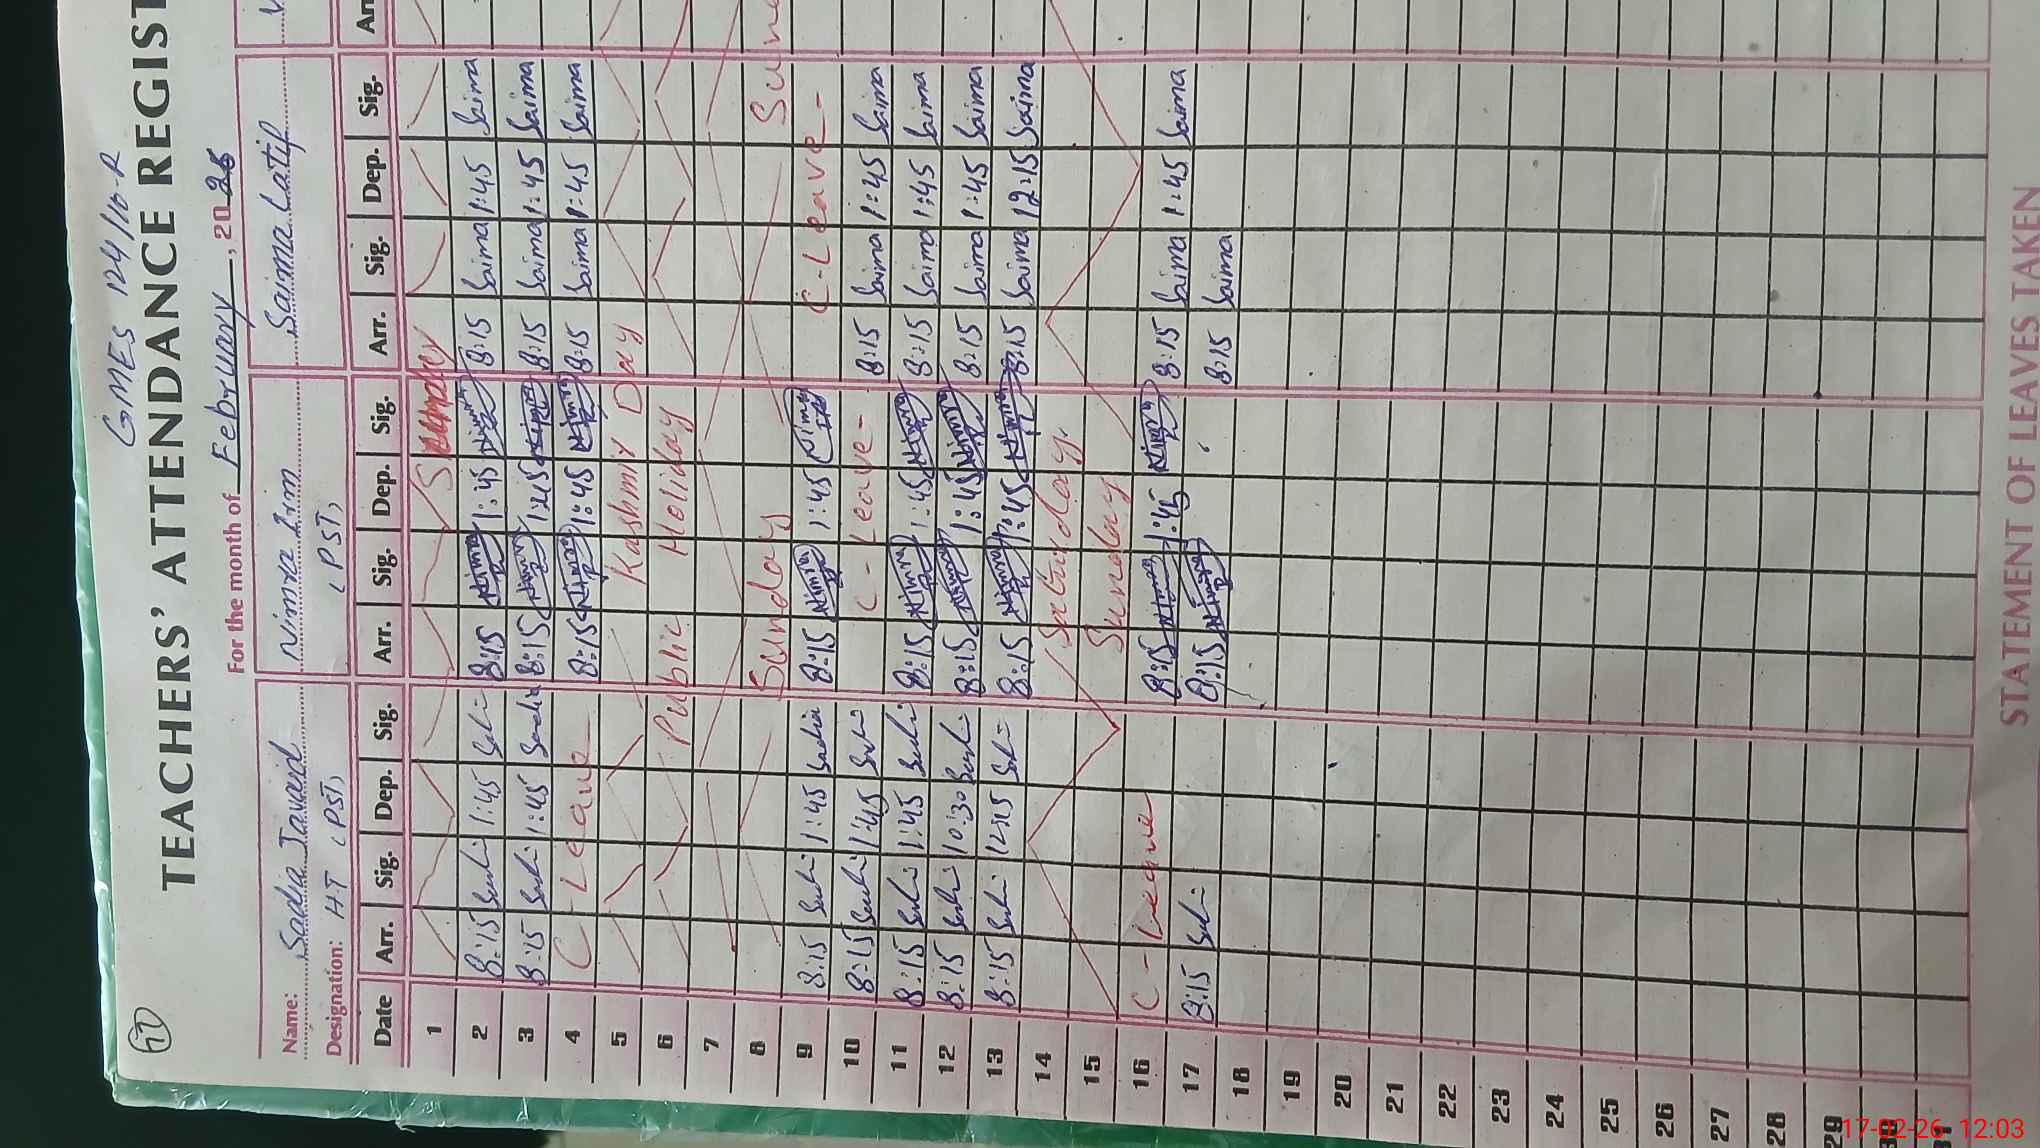 GMES 124/10-R
TEACHERS' ATTENDANCE REGIST
For the month of February, 2026
Name: Sadia Javaid Nimra Irm Saima Latif
Designation: H.T (PST) (PST)
Date Arr. Sig. Dep. Sig. Arr. Sig. Dep. Sig. Arr. Sig. Dep. Sig. Arr
1 Sunday
2 8:15 Sadia 1:45 Sadia 8:15 Nimra 1:45 Nimra 8:15 Saima 1:45 Saima
3 8:15 Sadia 1:45 Sadia 8:15 Nimra 1:45 Nimra 8:15 Saima 1:45 Saima
4 C-Leave 8:15 Nimra 1:45 Nimra 8:15 Saima 1:45 Saima
5 Kashmir Day
6 Public Holiday
7
8 Sunday Sun
9 8:15 Sadia 1:45 Sadia 8:15 Nimra 1:45 Nimra C-Leave-
10 8:15 Sadia 1:45 Sadia C-Leave- 8:15 Saima 1:45 Saima
11 8:15 Sadia 1:45 Sadia 8:15 Nimra 1:45 Nimra 8:15 Saima 1:45 Saima
12 8:15 Sadia 10:30 Sadia 8:15 Nimra 1:45 Nimra 8:15 Saima 1:45 Saima
13 8:15 Sadia 12:15 Sadia 8:15 Nimra 1:45 Nimra 8:15 Saima 12:15 Saima
14 Saturday
15 Sunday
16 C-Leave 8:15 Nimra 1:45 Nimra 8:15 Saima 1:45 Saima
17 8:15 Sadia 8:15 Nimra 8:15 Saima
18
19
20
21
22
23
24
25
26
27
28
29
30
31
STATEMENT OF LEAVES TAKEN
17-02-26 12:03